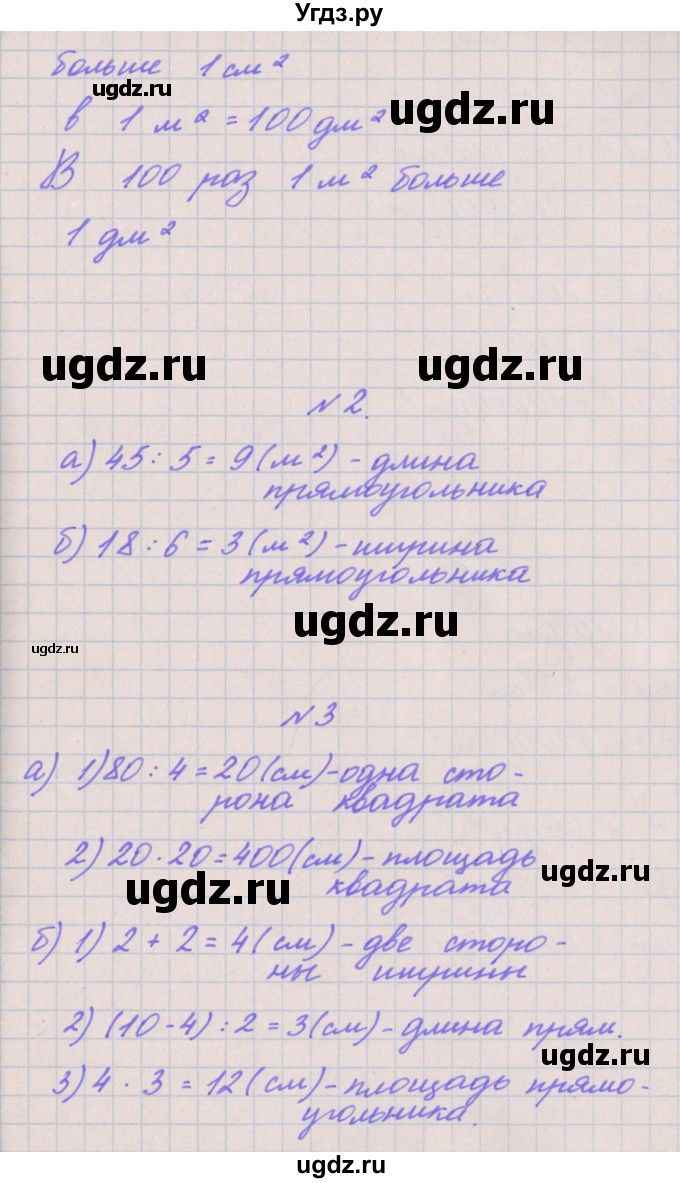 Угдз.ру
больше 1 см²
ugdz.ru
ugdz.ru
в 1 м² = 100 дм²
В 100 раз 1 м² больше
1 дм²
ugdz.ru
ugdz.ru
№ 2.
а) 45 : 5 = 9 (м²) - длина
прямоугольника
б) 18 : 6 = 3 (м²) - ширина
прямоугольника
ugdz.ru
ugdz.ru
№ 3
а) 1) 80 : 4 = 20 (см) - одна сто-
рона квадрата
2) 20 · 20 = 400 (см) - площадь
квадрата
ugdz.ru
ugdz.ru
б) 1) 2 + 2 = 4 (см) - две сторо-
ны ширины
2) (10 - 4) : 2 = 3 (см) - длина прям.
ugdz.ru
3) 4 · 3 = 12 (см) - площадь прямо-
угольника.
ugdz.ru